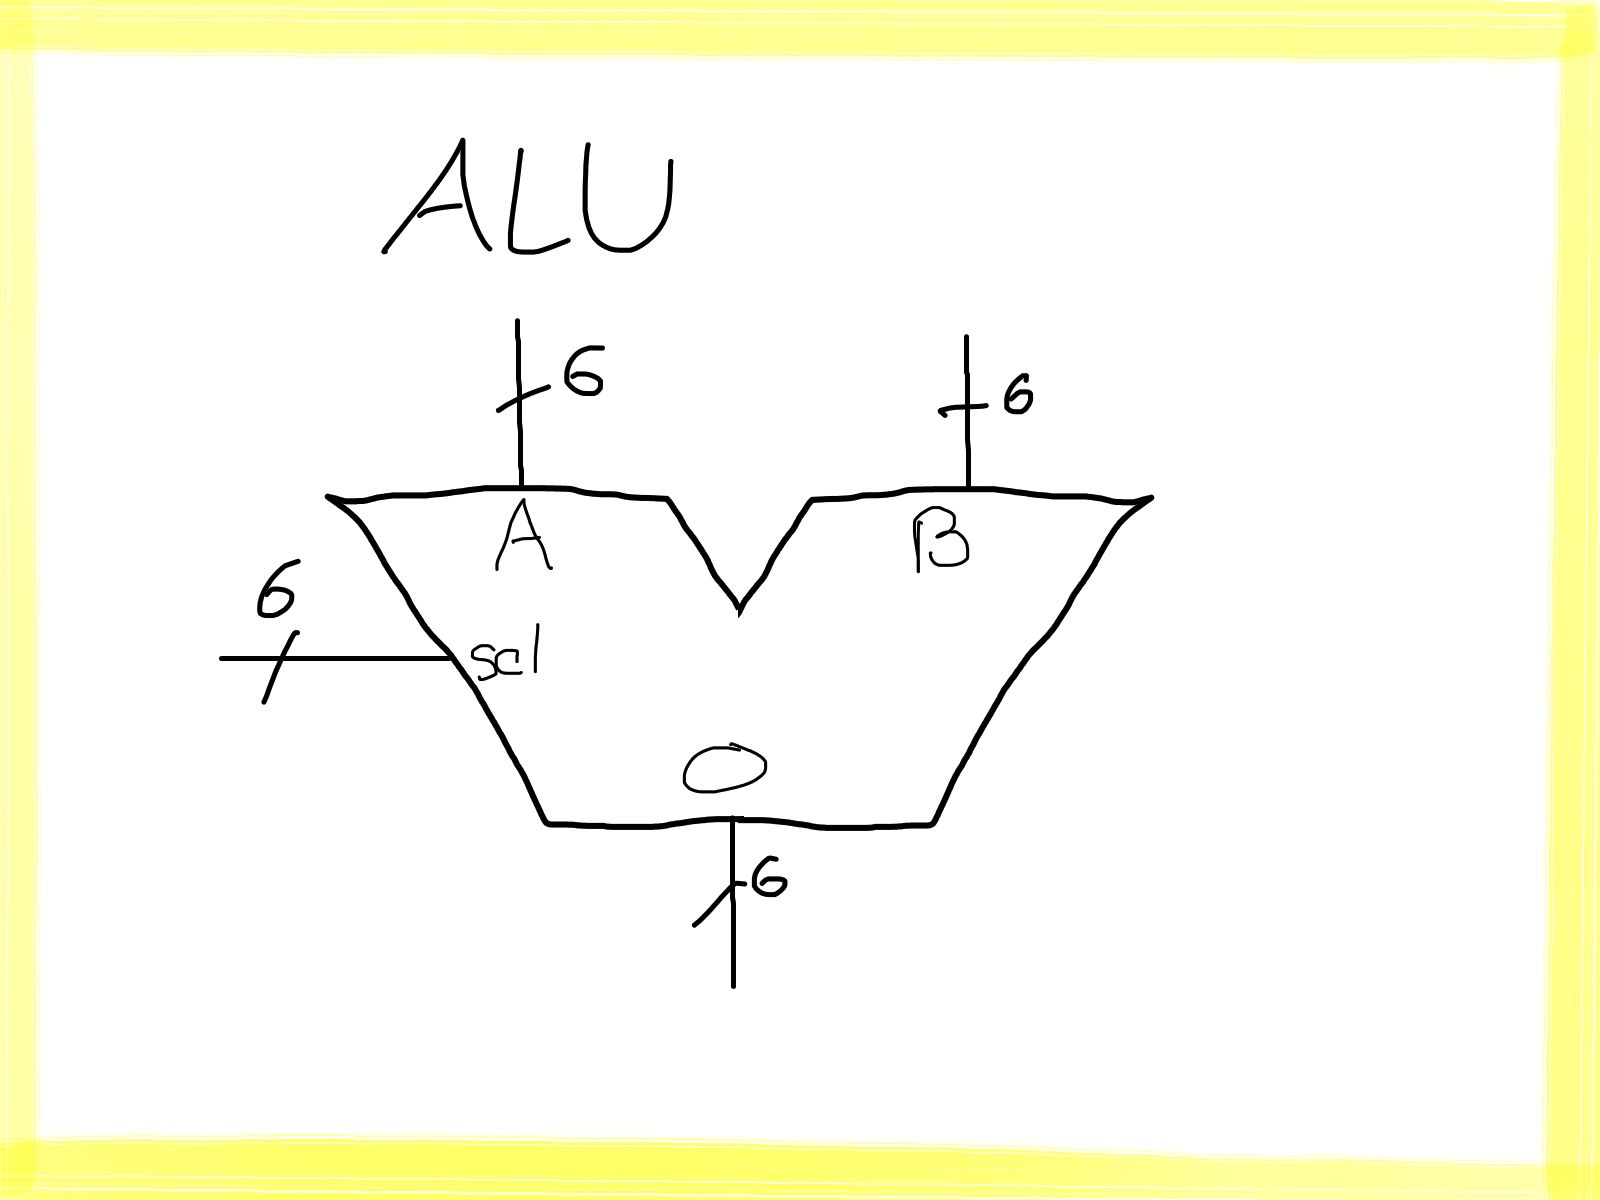 ALU
6
6
A
B
6
sel
O
6